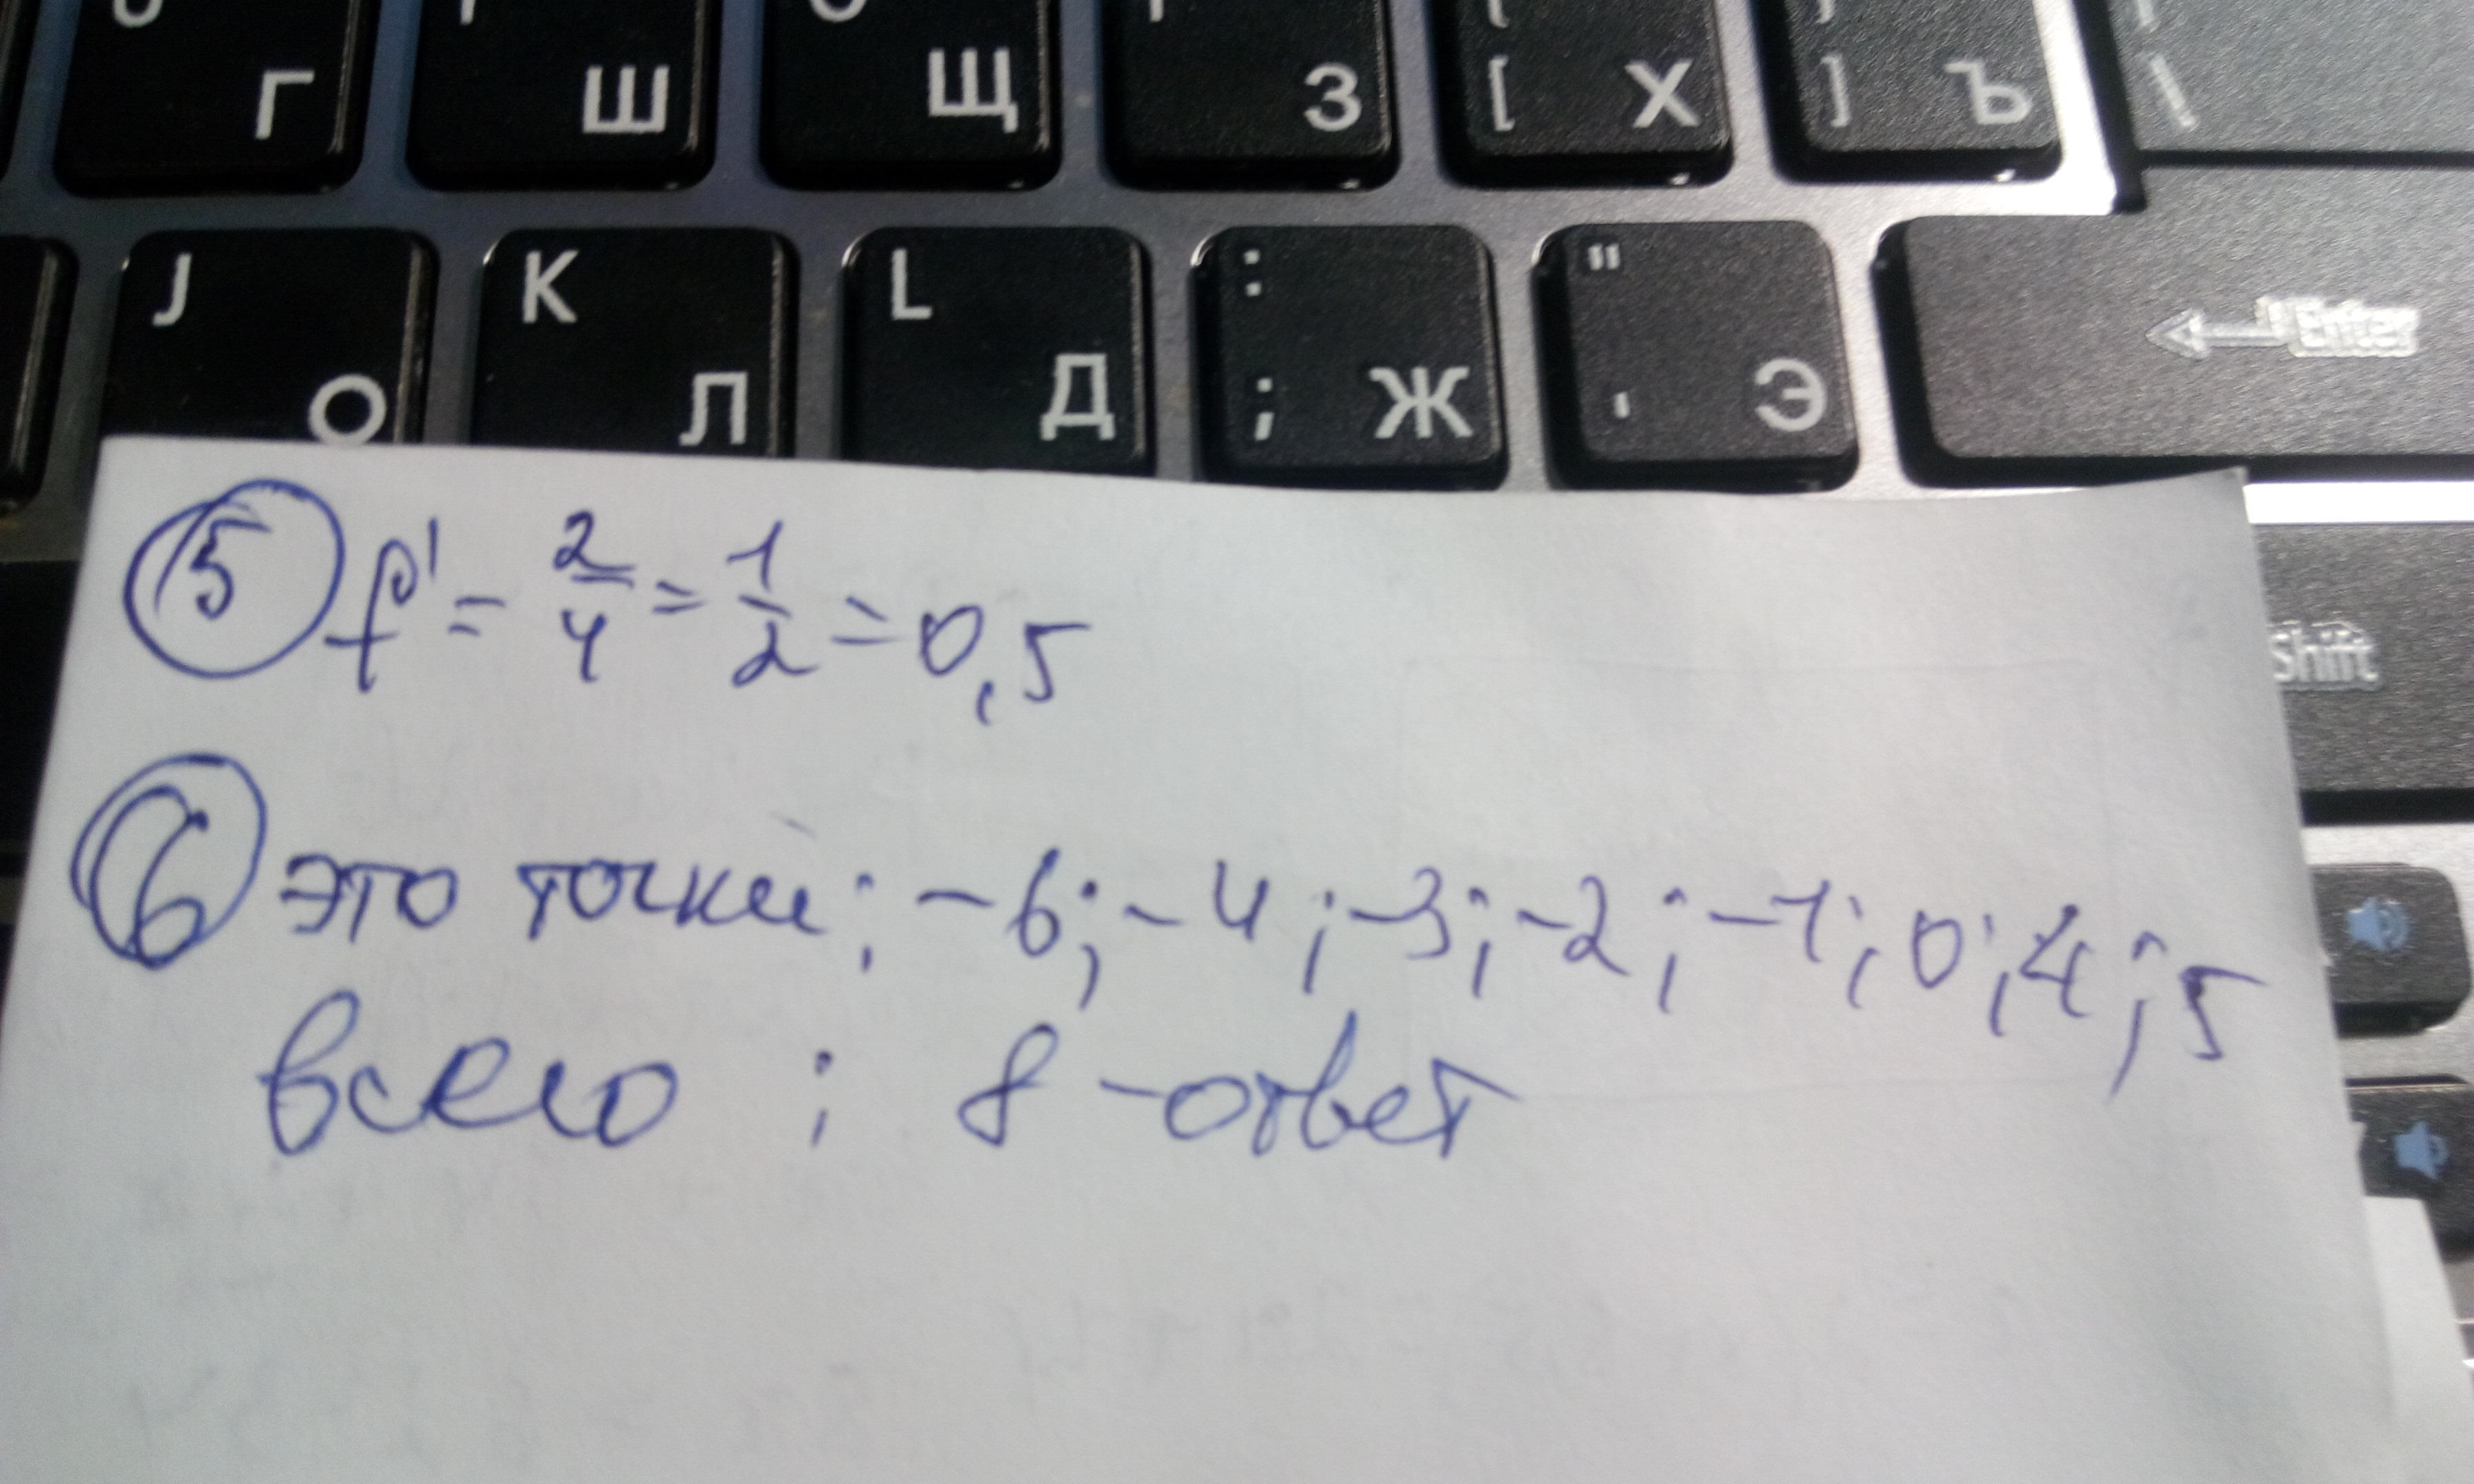 Г Ш Щ З [ Х ] Ъ \
J О K Л L Д : ; Ж " ' Э Enter
5 f' = 2/4 = 1/2 = 0,5
Shift
6 это точки; -6; -4; -3; -2; -1; 0; 4; 5
всего : 8 - ответ